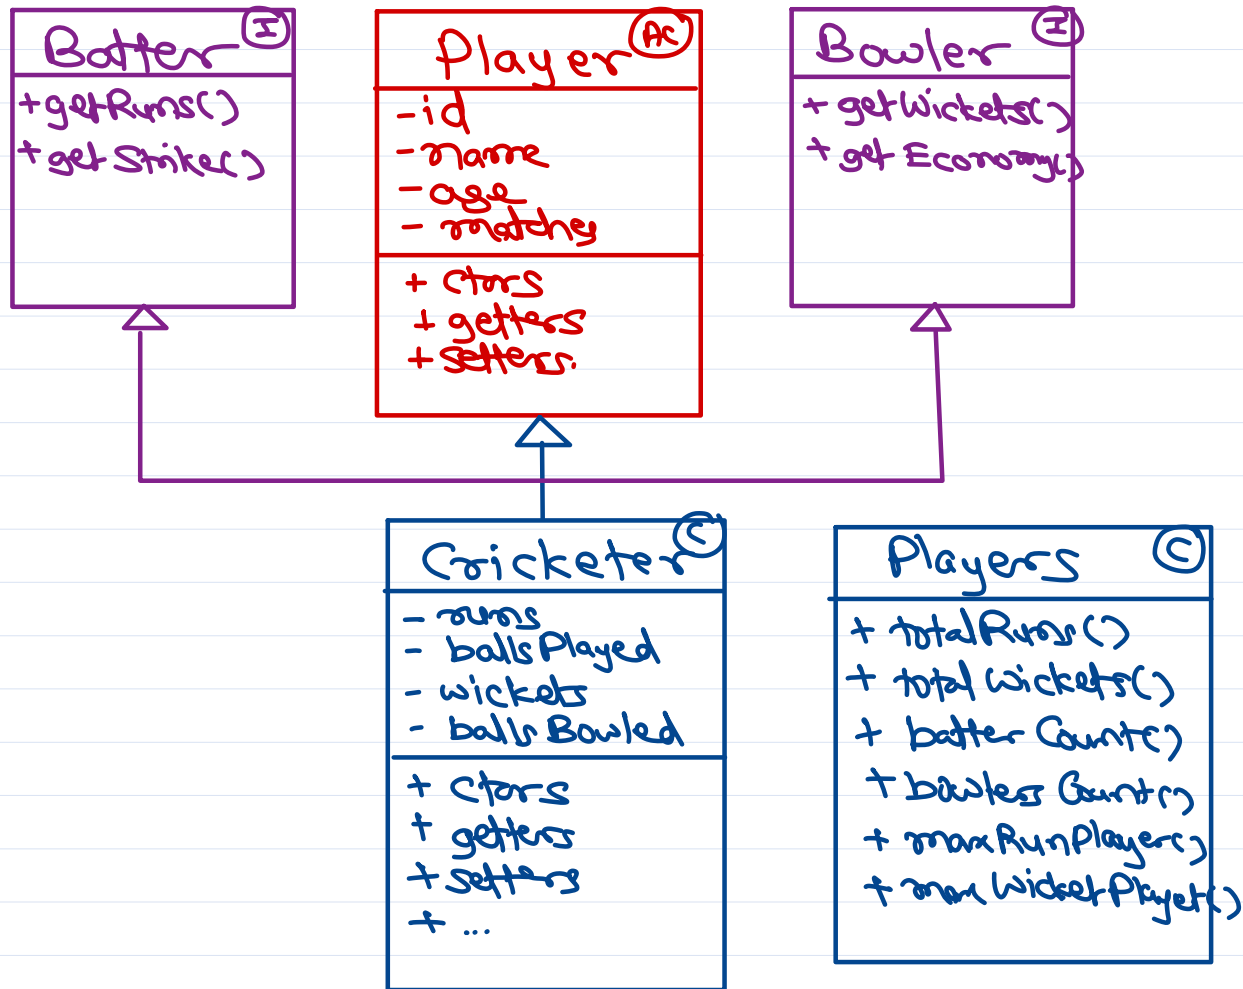 Batter
I
+ getRuns()
+ getStrike()
Player
AC
- id
- name
- age
- matches
+ ctors
+ getters
+ setters.
Bowler
I
+ getWickets()
+ getEconomy()
Cricketer
C
- runs
- ballsPlayed
- wickets
- ballsBowled
+ ctors
+ getters
+ setters
+ ...
Players
C
+ totalRuns()
+ totalWickets()
+ batterCount()
+ bowlersCount()
+ maxRunPlayer()
+ maxWicketPlayer()